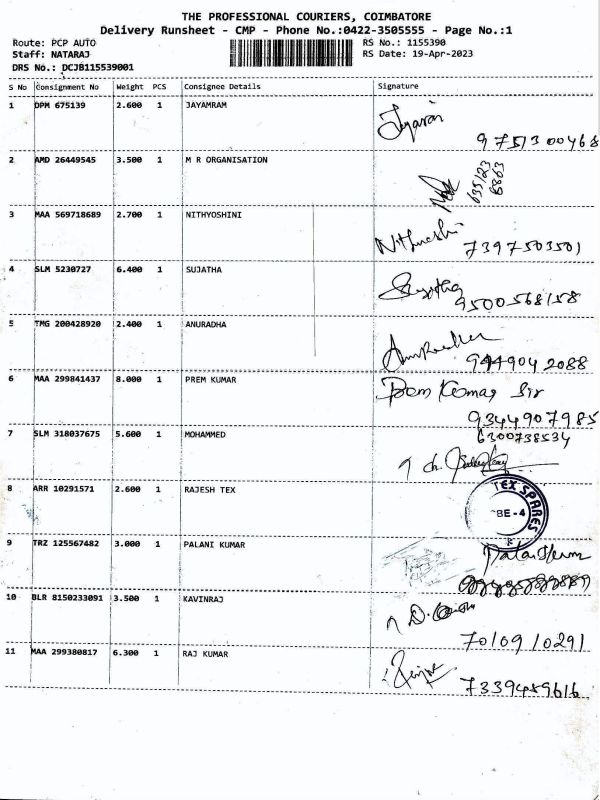 THE PROFESSIONAL COURIERS, COIMBATORE
Delivery Runsheet - CMP - Phone No.:0422-3505555 - Page No.:1
Route: PCP AUTO
Staff: NATARAJ
DRS No.: DCJB115539001
RS No.: 1155390
RS Date: 19-Apr-2023
S No Consignment No Weight PCS Consignee Details Signature
1 DPM 675139 2.600 1 JAYAMRAM
Jayaram
9751300468
2 AMD 26449545 3.500 1 M R ORGANISATION
635123
8863
3 MAA 569718689 2.700 1 NITHYOSHINI
7397503501
4 SLM 5230727 6.400 1 SUJATHA
Sujatha
9500568158
5 TMG 200428920 2.400 1 ANURADHA
Anuradha
9449042088
6 MAA 299841437 8.000 1 PREM KUMAR
Prem Kumar Sir
9344907985
7 SLM 318037675 5.600 1 MOHAMMED
6300738534
8 ARR 10291571 2.600 1 RAJESH TEX
TEX SPARES
CBE-4
9 TRZ 125567482 3.000 1 PALANI KUMAR
10 BLR 8150233091 3.500 1 KAVINRAJ
7010910291
11 MAA 299380817 6.300 1 RAJ KUMAR
7339489616